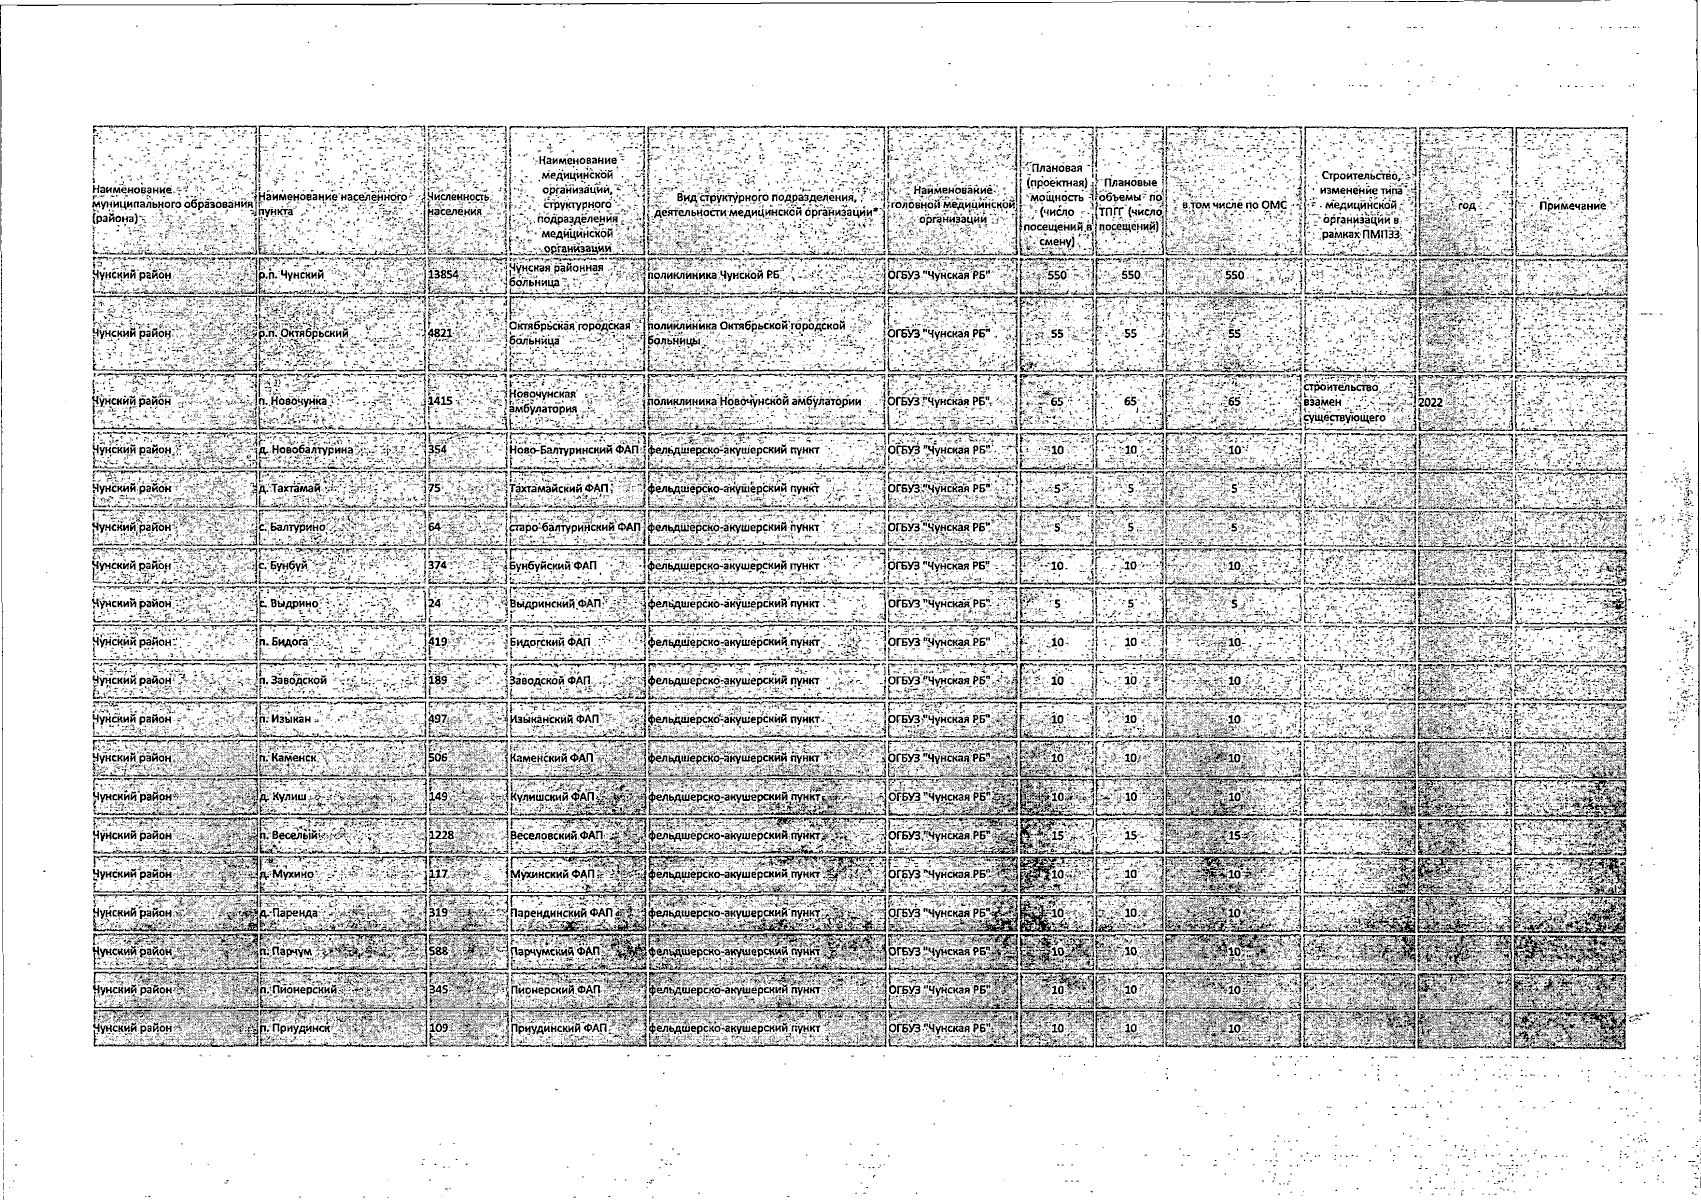 Наименование муниципального образования (района)
Наименование населенного пункта
Численность населения
Наименование медицинской организации, структурного подразделения медицинской организации
Вид структурного подразделения, деятельности медицинской организации*
Наименование головной медицинской организации
Плановая (проектная) мощность (число посещений в смену)
Плановые объемы по ТПГГ (число посещений)
в том числе по ОМС
Строительство, изменение типа медицинской организации в рамках ПМПЗЗ
год
Примечание
Чунский район р.п. Чунский 13854 Чунская районная больница поликлиника Чунской РБ ОГБУЗ "Чунская РБ" 550 550 550
Чунский район р.п. Октябрьский 4821 Октябрьская городская больница поликлиника Октябрьской городской больницы ОГБУЗ "Чунская РБ" 55 55 55
Чунский район п. Новочунка 1415 Новочунская амбулатория поликлиника Новочунской амбулатории ОГБУЗ "Чунская РБ" 65 65 65 строительство взамен существующего 2022
Чунский район д. Новобалтурина 354 Ново-Балтуринский ФАП фельдшерско-акушерский пункт ОГБУЗ "Чунская РБ" 10 10 10
Чунский район д. Тахтамай 75 Тахтамайский ФАП фельдшерско-акушерский пункт ОГБУЗ "Чунская РБ" 5 5 5
Чунский район с. Балтурино 64 старо-балтуринский ФАП фельдшерско-акушерский пункт ОГБУЗ "Чунская РБ" 5 5 5
Чунский район с. Бунбуй 374 Бунбуйский ФАП фельдшерско-акушерский пункт ОГБУЗ "Чунская РБ" 10 10 10
Чунский район с. Выдрино 24 Выдринский ФАП фельдшерско-акушерский пункт ОГБУЗ "Чунская РБ" 5 5 5
Чунский район п. Бидога 419 Бидогский ФАП фельдшерско-акушерский пункт ОГБУЗ "Чунская РБ" 10 10 10
Чунский район п. Заводской 189 Заводской ФАП фельдшерско-акушерский пункт ОГБУЗ "Чунская РБ" 10 10 10
Чунский район п. Изыкан 497 Изыканский ФАП фельдшерско-акушерский пункт ОГБУЗ "Чунская РБ" 10 10 10
Чунский район п. Каменск 506 Каменский ФАП фельдшерско-акушерский пункт ОГБУЗ "Чунская РБ" 10 10 10
Чунский район д. Кулиш 149 Кулишский ФАП фельдшерско-акушерский пункт ОГБУЗ "Чунская РБ" 10 10 10
Чунский район п. Веселый 1228 Веселовский ФАП фельдшерско-акушерский пункт ОГБУЗ "Чунская РБ" 15 15 15
Чунский район д. Мухино 117 Мухинский ФАП фельдшерско-акушерский пункт ОГБУЗ "Чунская РБ" 10 10 10
Чунский район д. Паренда 319 Парендинский ФАП фельдшерско-акушерский пункт ОГБУЗ "Чунская РБ" 10 10 10
Чунский район п. Парчум 588 Парчумский ФАП фельдшерско-акушерский пункт ОГБУЗ "Чунская РБ" 10 10 10
Чунский район п. Пионерский 345 Пионерский ФАП фельдшерско-акушерский пункт ОГБУЗ "Чунская РБ" 10 10 10
Чунский район п. Приудинск 109 Приудинский ФАП фельдшерско-акушерский пункт ОГБУЗ "Чунская РБ" 10 10 10